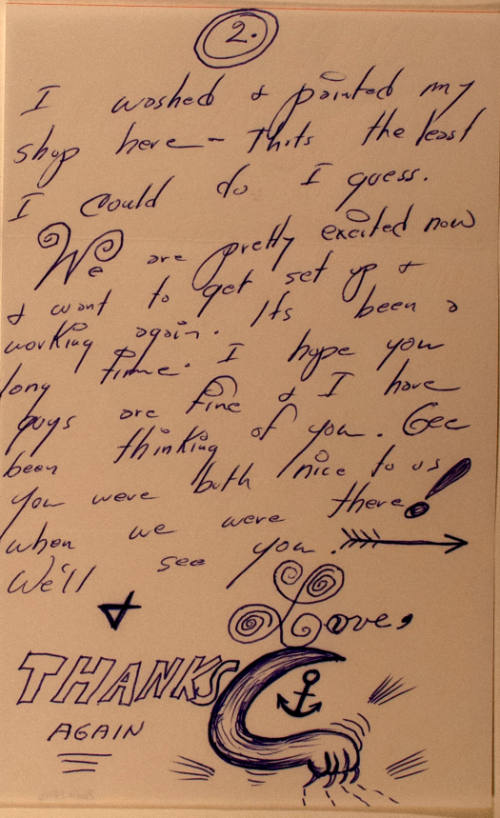 2.
I washed & painted my
shop here - thits the least
I could do I guess.
We are pretty excited now
& want to get set up &
working again. Its been a
long time. I hope you
guys are fine & I have
been thinking of you. Gee
you were both nice to us
when we were there!
We'll see you.
&
Love,
THANKS
AGAIN